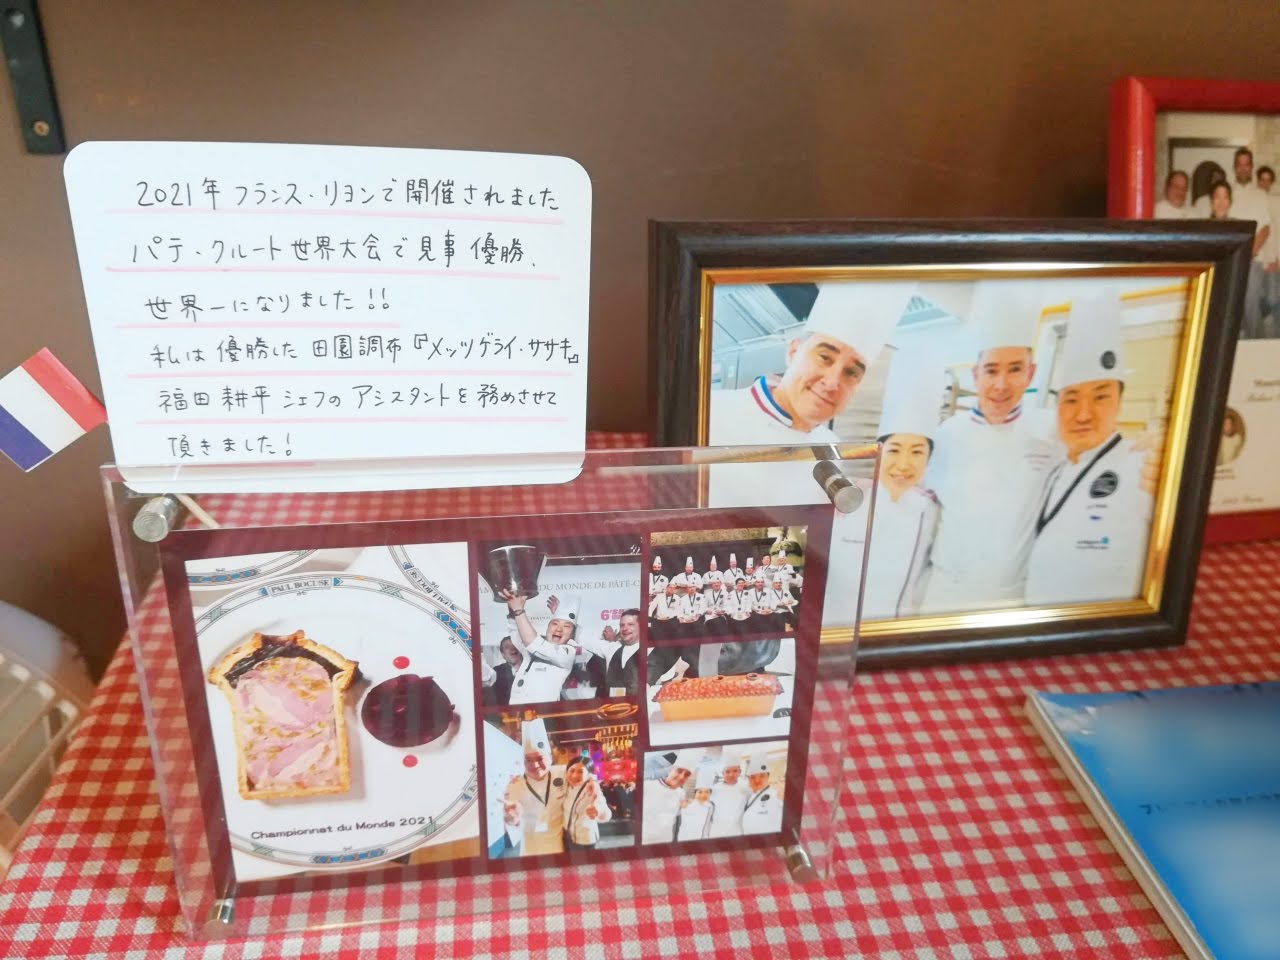 2021年 フランス・リヨンで開催されました
パテ・クルート世界大会で見事優勝、
世界一になりました!!
私は優勝した田園調布『メッツゲライ・ササキ』
福田耕平シェフのアシスタントを務めさせて
頂きました!
PAUL BOCUSE
Championnat du Monde 2021
DU MONDE DE PÂTÉ-C